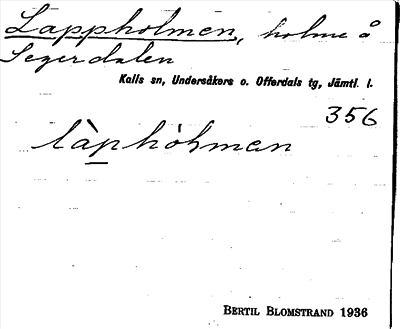 Lappholmen, holme å
Segerdalen
Kalls sn, Undersåkers o. Offerdals tg, Jämtl. l.
356
làp̲hòhman
BERTIL BLOMSTRAND 1936